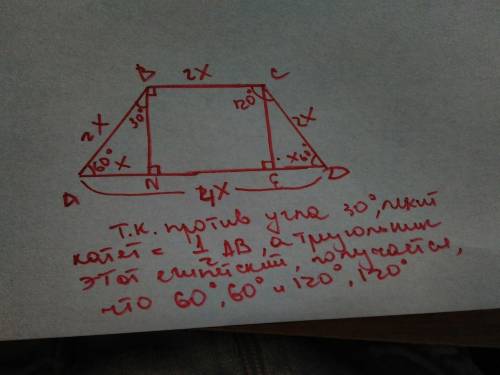 B 2X C
2X 30° 120° 2X
60° X X 60°
A N E D
4X
Т.к. против угла 30°, лежит
катет = 1/2 AB, а треугольник
этот египетский, получается,
что 60°, 60° и 120°, 120°